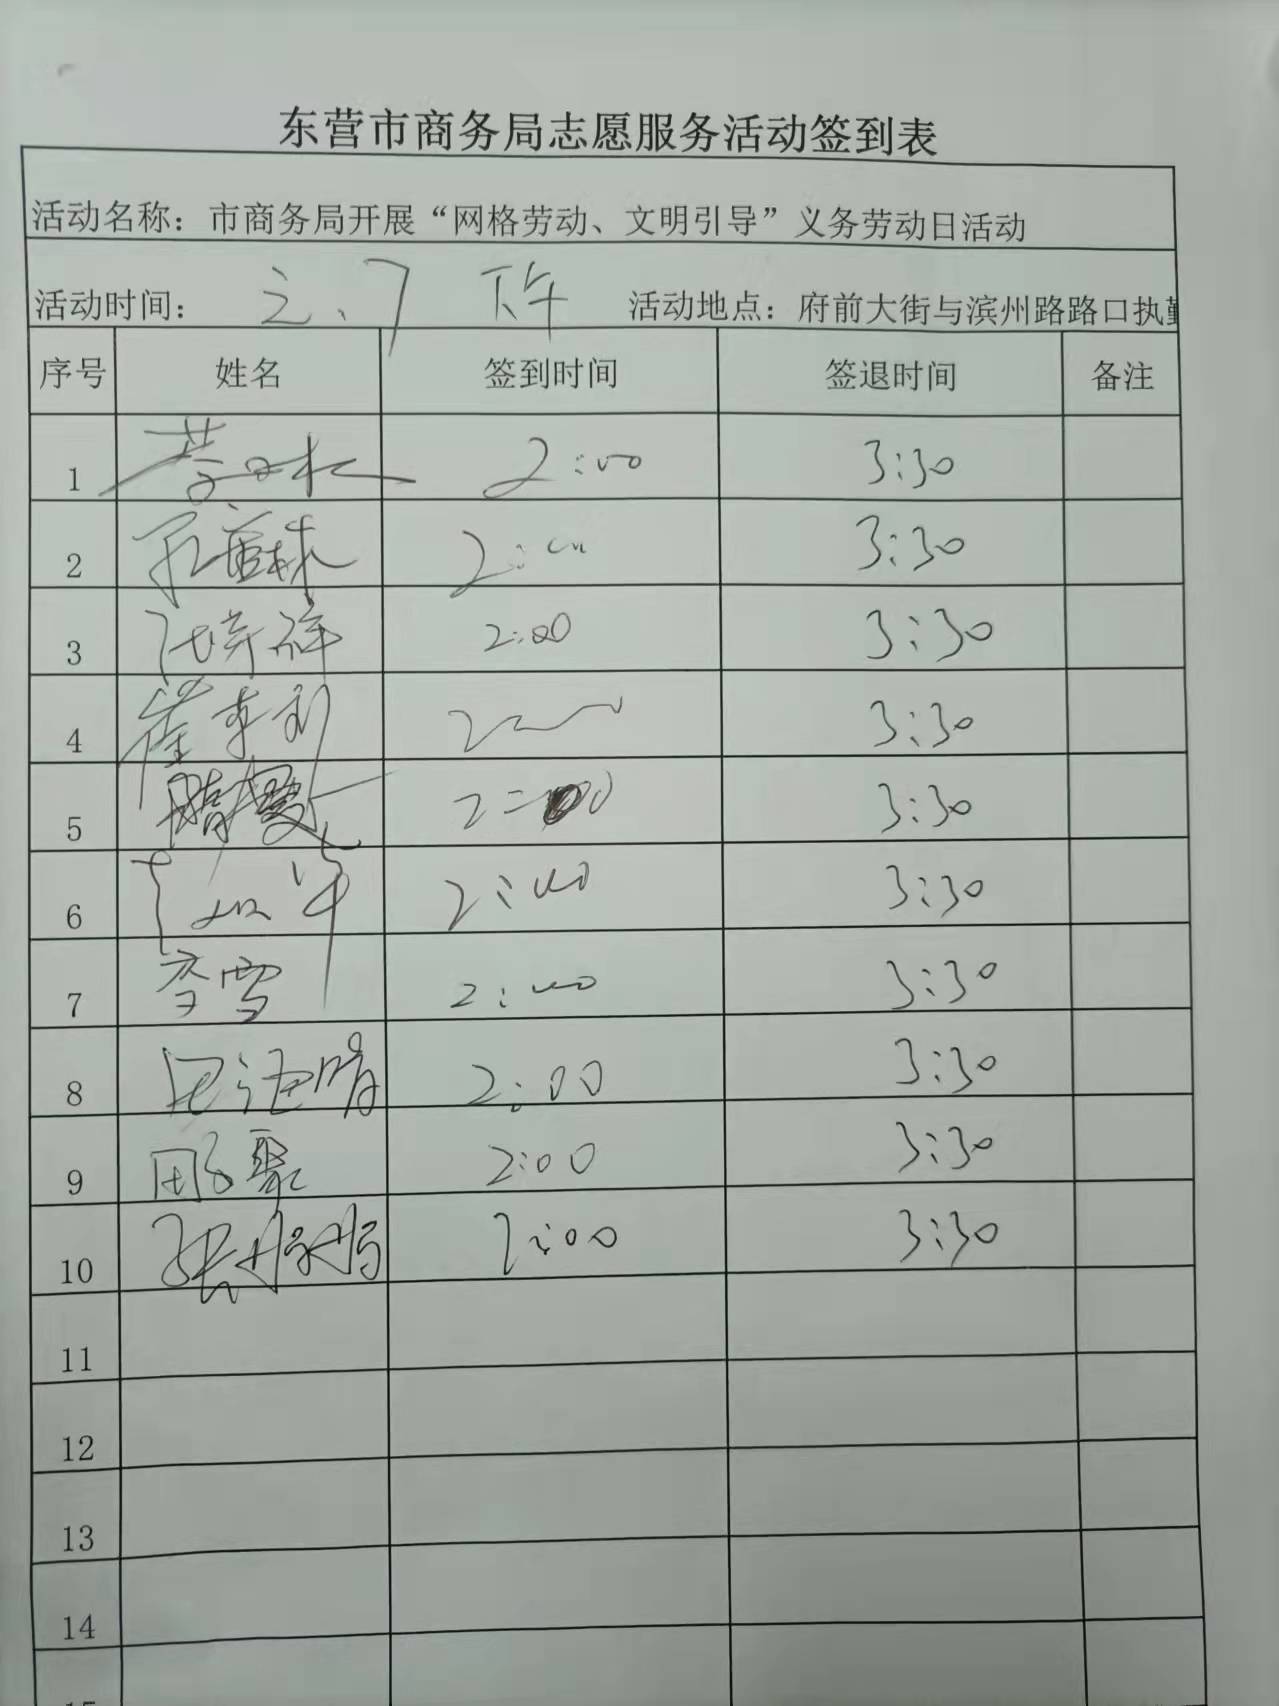 东营市商务局志愿服务活动签到表
活动名称：市商务局开展“网格劳动、文明引导”义务劳动日活动
活动时间： 7 下午 活动地点：府前大街与滨州路路口执勤
序号 姓名 签到时间 签退时间 备注
1 2:00 3:30
2 2:00 3:30
3 2:00 3:30
4 崔 3:30
5 隋 2:00 3:30
6 2:00 3:30
7 李雪 2:00 3:30
8 2:00 3:30
9 聚 2:00 3:30
10 张婷婷 2:00 3:30
11
12
13
14
15